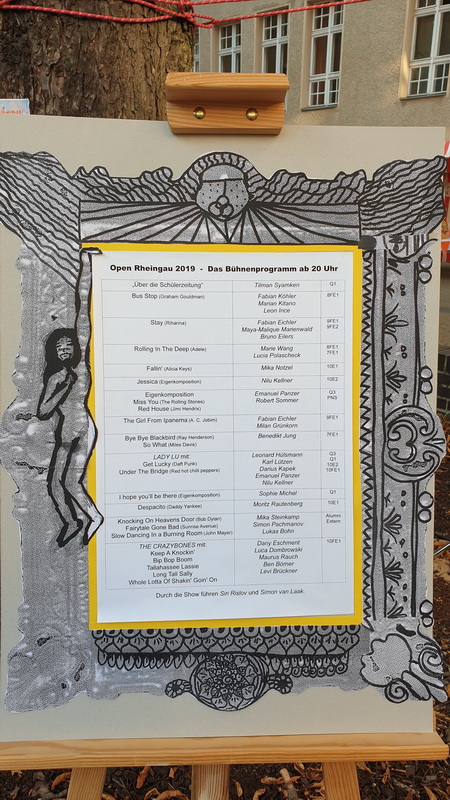 Open Rheingau 2019 - Das Bühnenprogramm ab 20 Uhr
„Über die Schülerzeitung“ Tilman Syamken Q1
Bus Stop (Graham Gouldman) Fabian Köhler 8FE1
Marian Kitano
Leon Ince
Stay (Rihanna) Fabian Eichler 9FE1
Maya-Malique Marienwald 9FE2
Bruno Eilers
Rolling In The Deep (Adele) Marie Wang 8FE1
Lucia Polascheck 7FE1
Fallin' (Alicia Keys) Mika Notzel 10E1
Jessica (Eigenkomposition) Nilu Kellner 10E2
Eigenkomposition Emanuel Panzer Q3
Miss You (The Rolling Stones) Robert Sommer PNS
Red House (Jimi Hendrix)
The Girl From Ipanema (A. C. Jobim) Fabian Eichler 9FE1
Milan Grünkorn
Bye Bye Blackbird (Ray Henderson) Benedikt Jung 7FE1
So What (Miles Davis)
LADY LU mit: Leonard Hülsmann Q3
Get Lucky (Daft Punk) Karl Lützen Q1
Under The Bridge (Red hot chili peppers) Darius Kapek 10E2
Emanuel Panzer 10FE1
Nilu Kellner
I hope you'll be there (Eigenkomposition) Sophie Michel Q1
Despacito (Daddy Yankee) Moritz Rautenberg 10E1
Knocking On Heavens Door (Bob Dylan) Mika Steinkamp Alumni
Fairytale Gone Bad (Sunrise Avenue) Simon Pachmanov Extern
Slow Dancing In a Burning Room (John Mayer) Lukas Bohn
THE CRAZYBONES mit: Dany Eschment 10FE1
Keep A Knockin' Luca Dombrowski
Bip Bop Boom Maurus Rauch
Tallahassee Lassie Ben Börner
Long Tall Sally Levi Brückner
Whole Lotta Shakin' Goin' On
Durch die Show führen Siri Rislov und Simon van Laak.